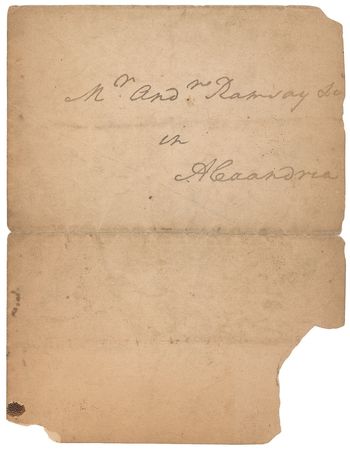 Mr. Andr. Ramsay
in
Alexandria